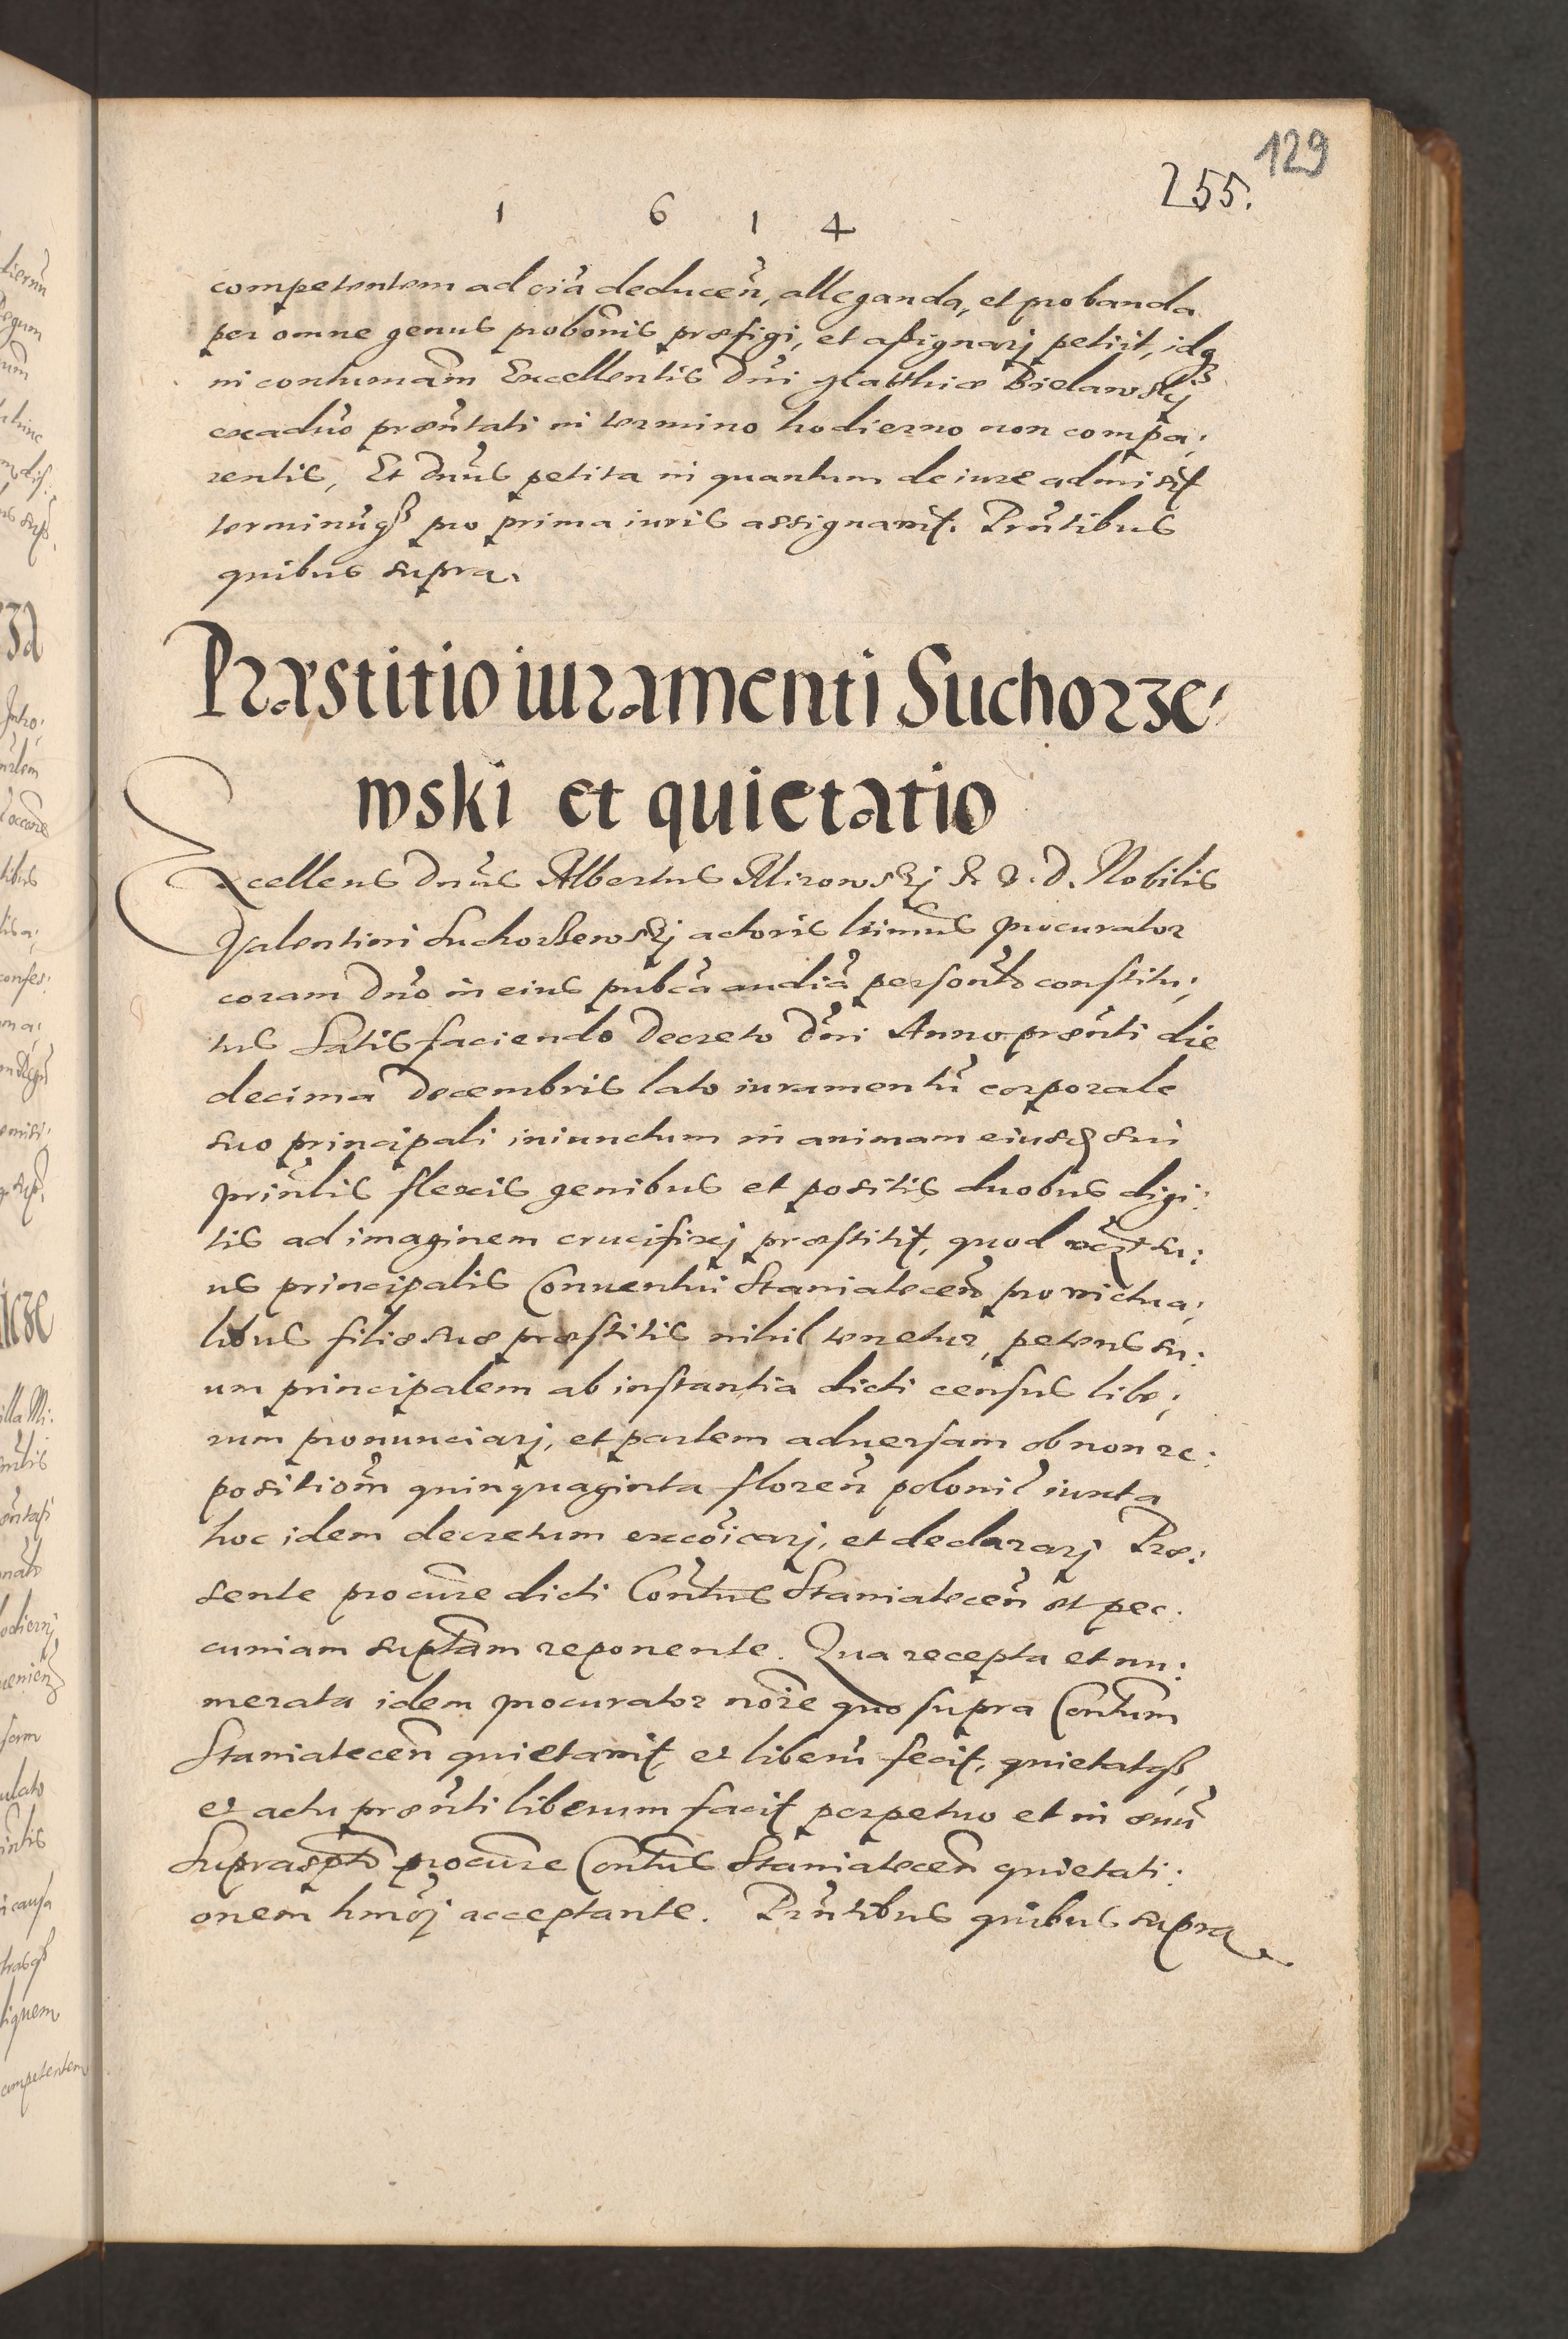 129
255.
1 6 1 4
competentem ad oīa deduceñ, alleganda, et probanda
per omne genus probōnis præfigi, et assignarj petijt, idq3
in contumām Excellentis Dñi Matthiæ Bielawskj
ex aduō præntati in termino hodierno non compa:
rentis, Et Dnūs petita in quantum de iure admisit
terminūq3 pro prima iuris assignauit. Prntibus
quibus supra.
Præstitio iuramenti Suchorze:
wski et quietatio
Excellens Dnūs Albertus Mirowskj J. V. D. Nobilis
Valentini Suchorzewskj actoris ltimus procurator
coram Dnō in eius pubcā audiā personlr constitu:
tus Satisfaciendo Decreto Dñi Anno prænti die
decima Decembris lato iuramentū corporale
suo principali iniunctum in animam eiusd sui
prinlis flexis genibus et positis duobus digi:
tis ad imaginem crucifixj præstitit, quod su:
us principalis Conuentui Staniateceñ pro victua:
libus filiæ suæ præstitis nihil tenetur, petens su:
um principalem ab instantia dicti census libe:
rum pronunciarj, et partem aduersam ob non re:
positiom̄ quinquaginta floreñ poloni iuxta
hoc idem decretum excōicarj, et declararj Præ:
sente procure dicti Contus Staniateceñ et pec:
cuniam suptam reponente. Qua recepta et nu:
merata idem procurator noīe quo supra Contum
Staniateceñ quietauit et liberū fecit, quietatq3
et actu prænti liberum facit perpetuo et in æuū
Suprascpto procure Contus Staniateceñ quietati:
onem hmōj acceptante. Prntibus quibus supra